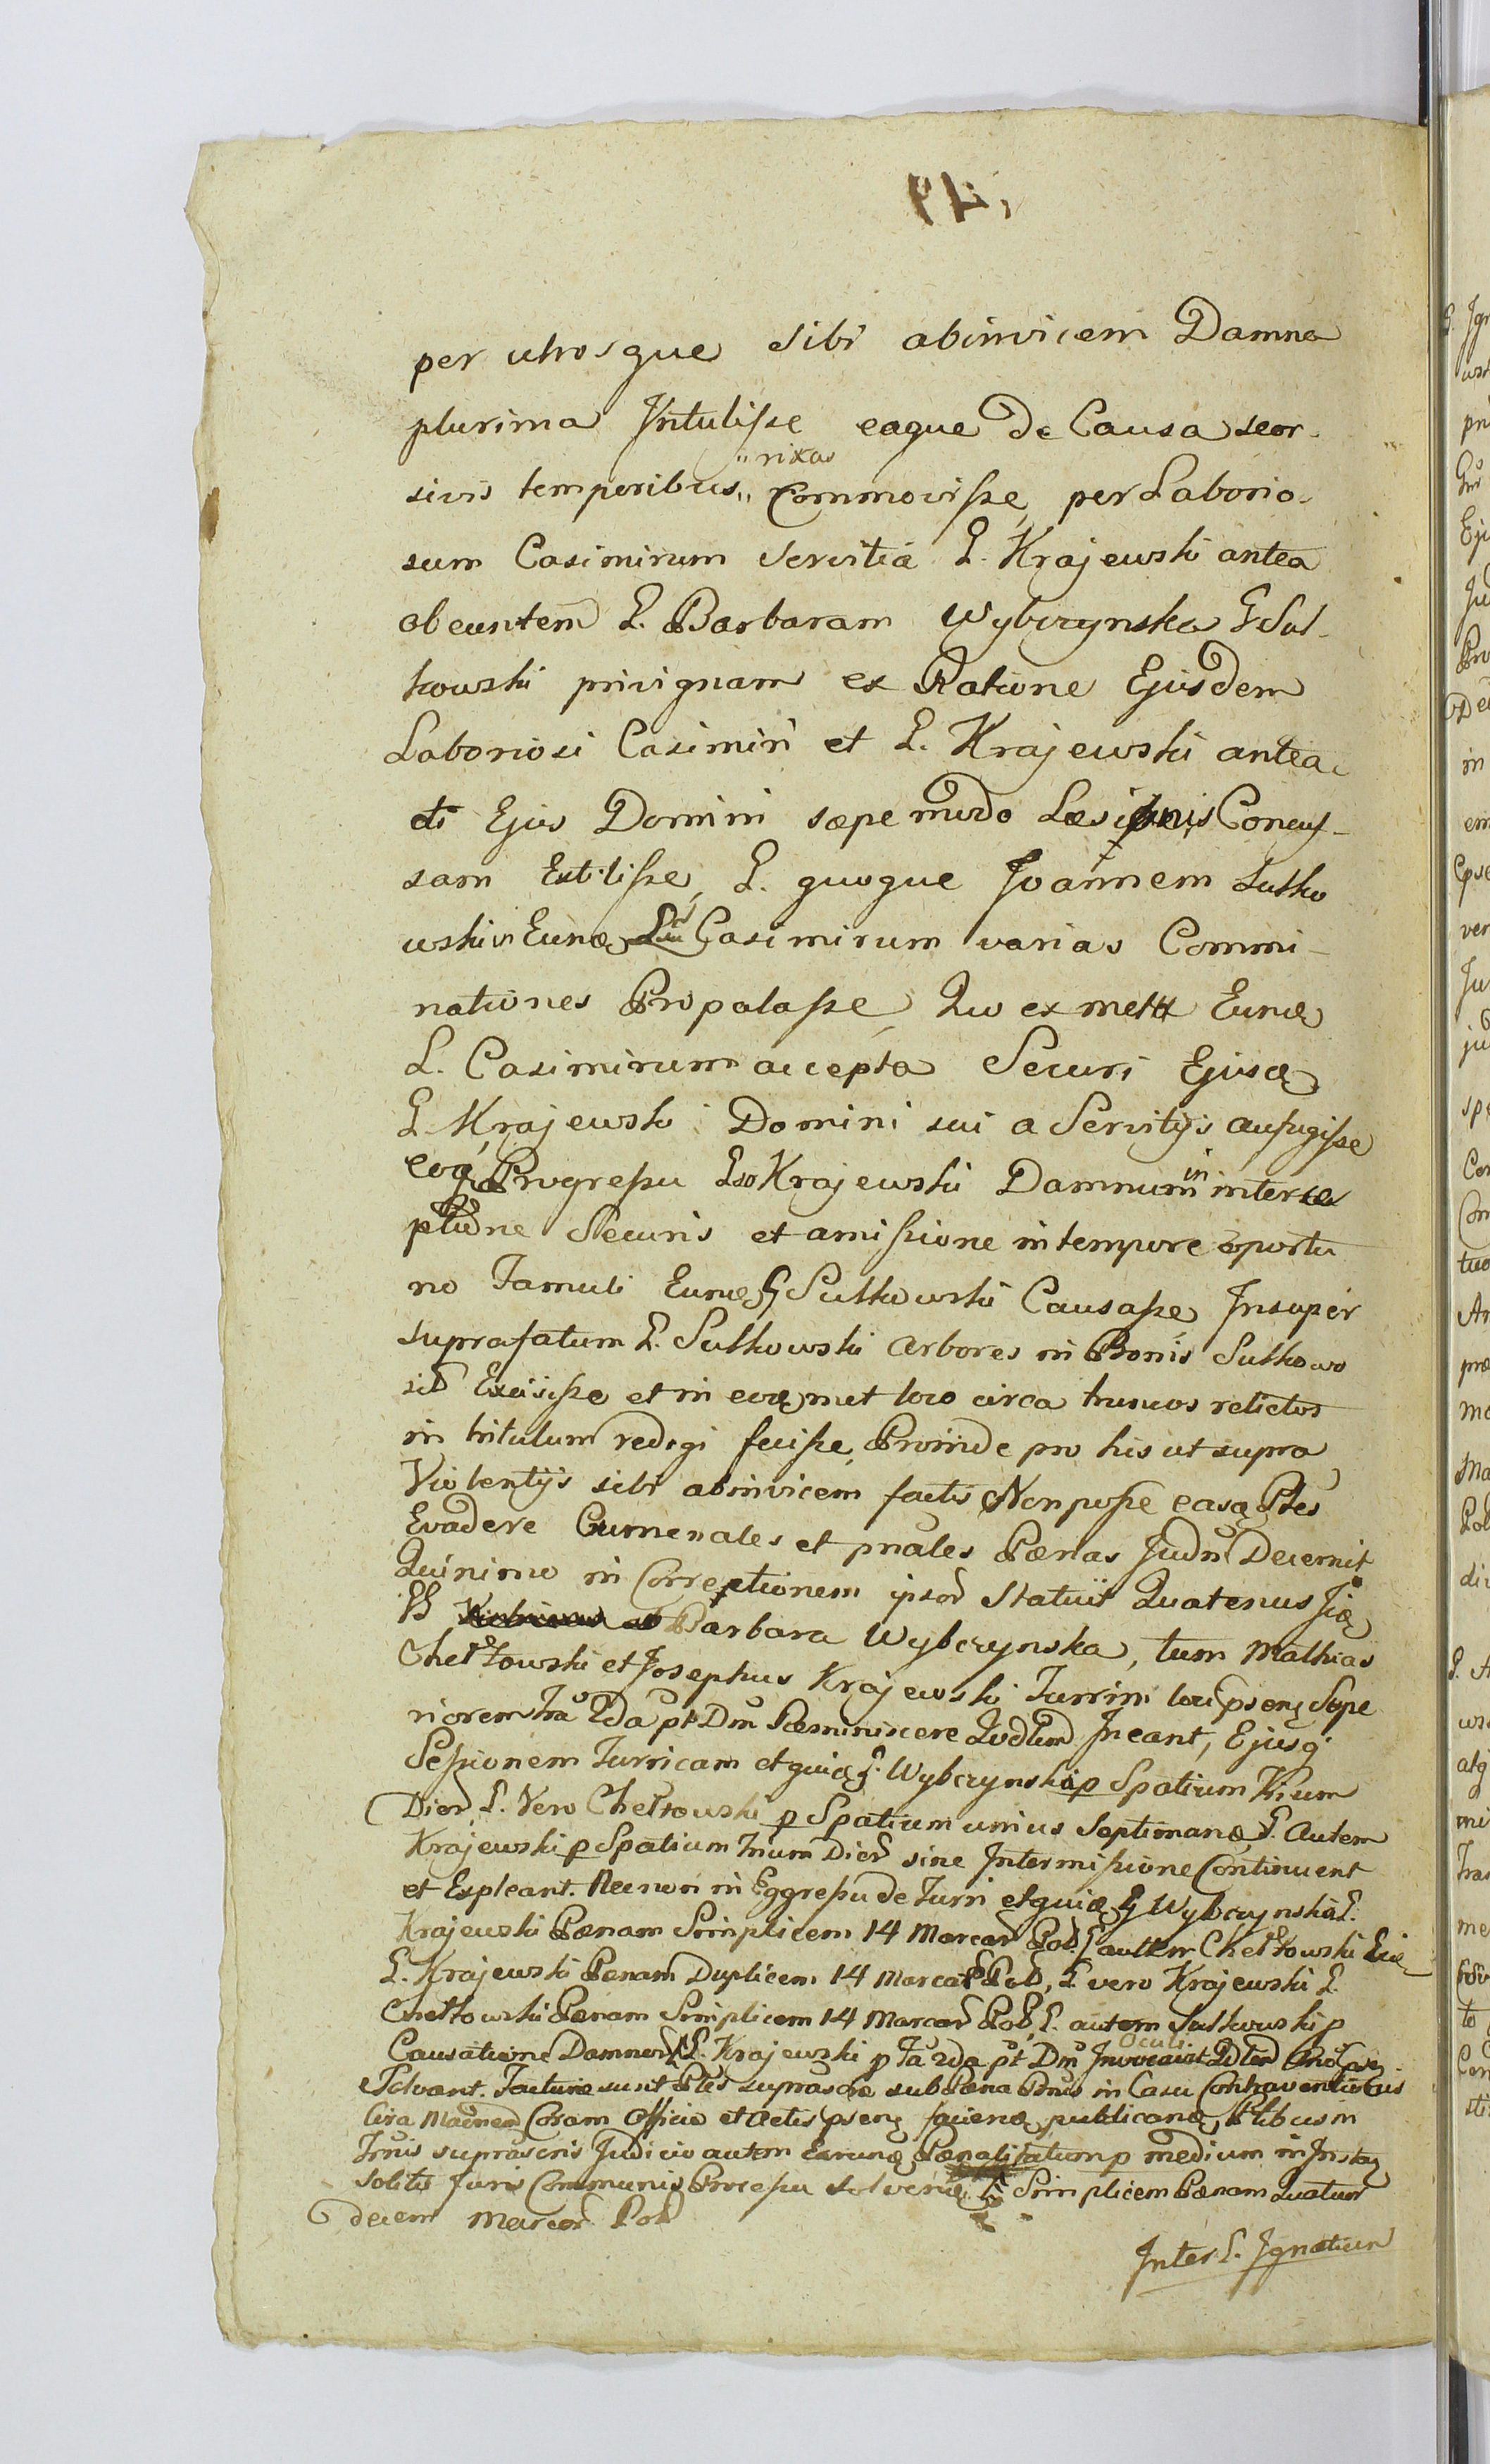 per utrosque sibi abinvicem Damna
plurima Intulisse eaque de Causa seor-
rixas
sivis temporibus,, Commovisse, per Laborio-
sum Casimirum servitia G. Krajewski antea
obeuntem G. Barbaram Wybczynska G Sul-
kowski privignam ex Ratione Ejusdem
Laboriosi Casimiri et G. Krajewski antea
di Ejus Domini sæpe modo Læsionis Concus-
sam Extitisse, G. quoque Joannem Sulko
wski Eundq Casimirum varias Commi-
nationes Propalasse, Quo ex metu Eundq
L. Casimirum accepta Securi Ejusdq
G Krajewski Domini sui a Servitijs aufugisse
eoq Progressu Gso Krajewski Damnum in interce
ptione Securis et amissione in tempore oportu
no Famuli Eundq G Sulkowski Causasse, Insuper
suprafatum G. Sulkowski Arbores in Bonis Sulkowo
sib Excisisse et in eodq met loco circa truncos relictos
in titulum redigi fecisse, Proinde pro his ut supra
Violentijs sibi abinvicem factis Non posse easdq Ptes
Evadere Crimenales et pnales Pænas Judm Decernit
Quinimo in Correptionem ipsor Statuit Quatenus
GG Barbara Wybczynska, tum Mathias
Chełstowski et Josephus Krajewski Turrim loci psenq Supe
riorem Fra 2da pt Dm Reminiscere Qudlem Ineant, Ejusq
Sessionem Turricam et quidq G. Wybczynska p Spatium trium
Dier, G. Vero Chełstowski p Spatium unius Septimanæ, G. Autem
Krajewski p Spatium trium Dier sine Intermissione Continuent
et Expleant. Necnon in Eggressu de Turri et quidq G Wybczynska G.
Krajewski Pænam Simplicem 14 Marcar Pol, G autem Chełstowski
G. Krajewski Pænam Duplicem 14 Marcar Pol, G vero Krajewski G.
Chełstowski Pænam Simplicem 14 Marcar Pol, G. autem Sulkowski p
Oculi
Causatione Damnor G. Krajewski p Fa 2da pt Dm Invocavit Qdlem
Solvant. Facturæ sunt Ptes suprascræ sub Pæna Bnis in Casu Contraventionis
Circa Præmen Coram Officio et Actis psenq faciendq publicandq, Ptibus in
Tmis suprascris Judicio autem Earundq Pænalitatum p medium in Instan
soliti Juris Communis Processu solvendq Simplicem Pænam Quatuor
decem Marcar Pol
Inter G. Ignatium